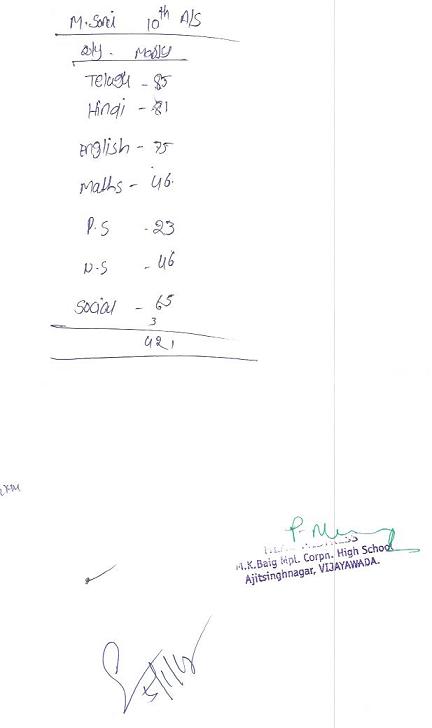 M. Soni 10th A/S
Telugu - 85
Hindi - 81
English - 75
Maths - 46
P.S - 23
N.S - 46
Social - 65
3
421
M.K.Baig Mpl. Corpn. High School
Ajitsinghnagar, VIJAYAWADA.